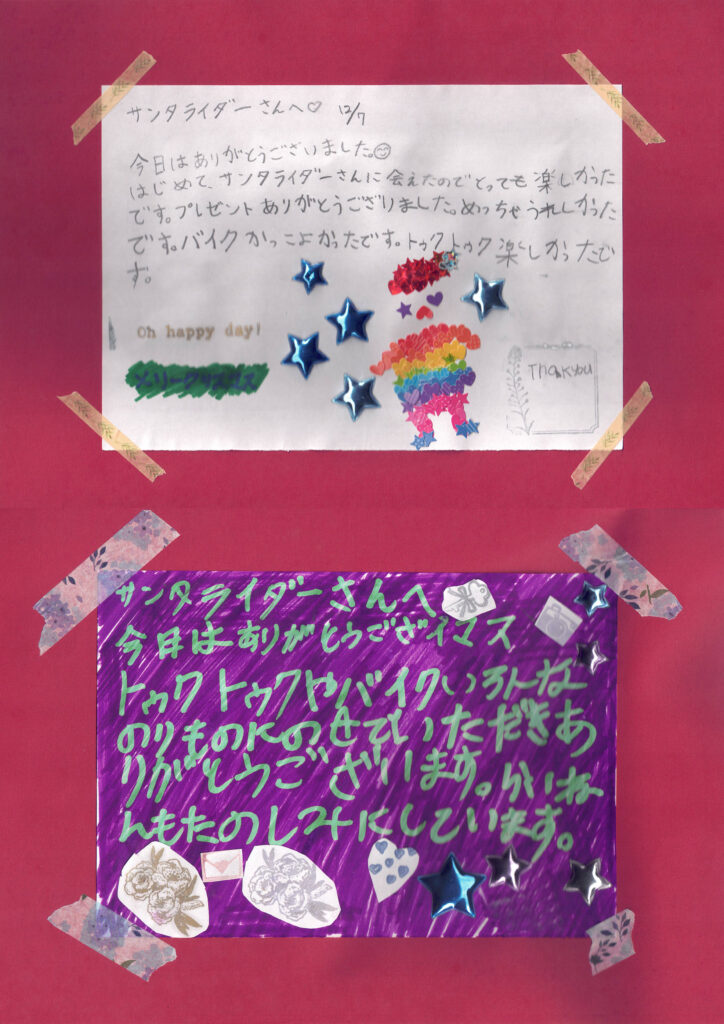 サンタライダーさんへ♡ 12/7
今日はありがとうございました。😊
はじめて、サンタライダーさんに会えたのでとっても楽しかった
です。プレゼントありがとうございりました。めっちゃうれしかった
です。バイクかっこよかったです。トゥクトゥク楽しかったで
す。
Oh happy day!
メリークリスマス
Thakyou
サンタライダーさんへ
今日はありがとうござイマス
トゥクトゥクやバイクいろんな
のりものにのせていただきあ
りがとうございます。らいね
んもたのしみにしています。